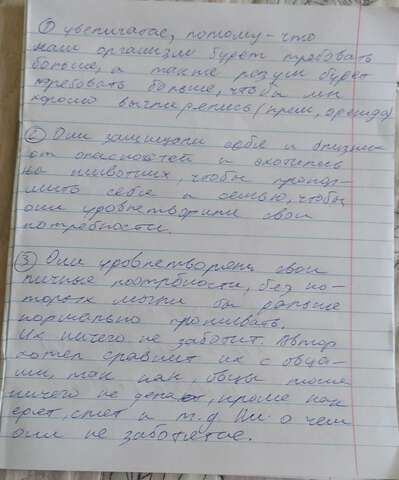 ① увеличатся, потому-что
наш организм будет требовать
больше, а также разум будет
требовать больше, чтобы мы
просто выживались (крем,
② Они защищали себя и близких
от опасностей и охотились
на животных, чтобы прокор-
мить себя и семью, чтобы
они удовлетворили свои
потребности.
③ Они удовлетворяли свои
личные потребности, без ко-
торых могли бы дальше
нормально проживать.
Их ничего не заботит. Автор
хотел сравнит их с овца-
ми, так как, овцы тоже
ничего не делают, кроме как
едят, спят и т.д Ни о чем
они не заботятся.